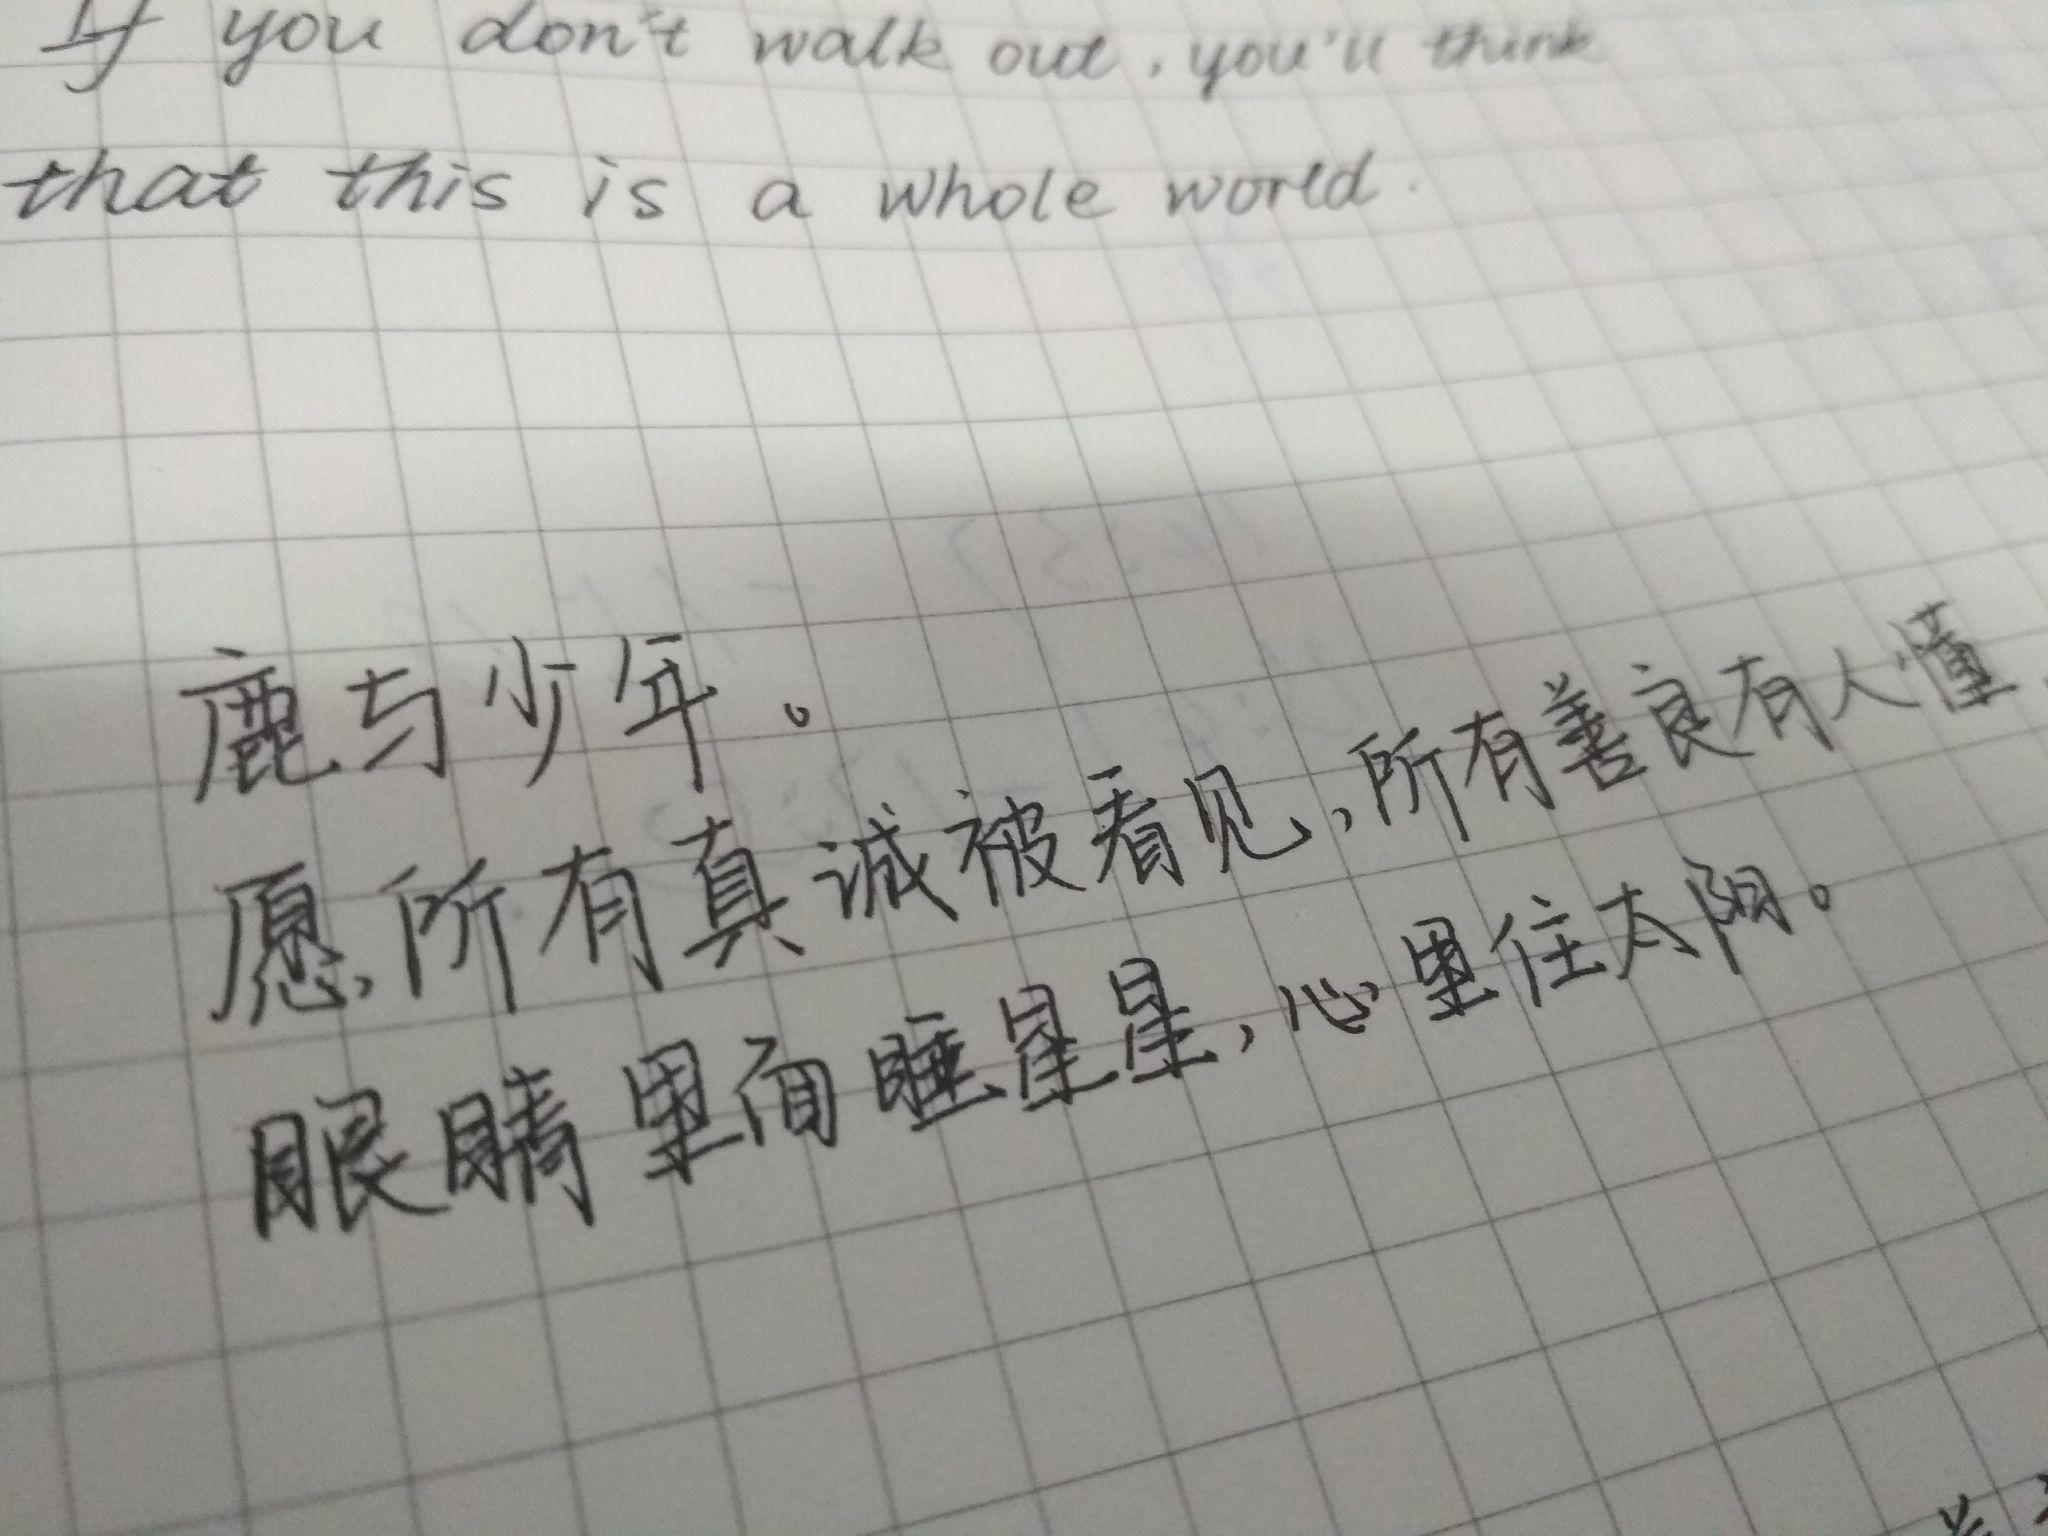 If you don't walk out, you'll think
that this is a whole world.
鹿与少年。
愿所有真诚被看见,所有善良有人懂,
眼睛里面睡星星,心里住太阳。